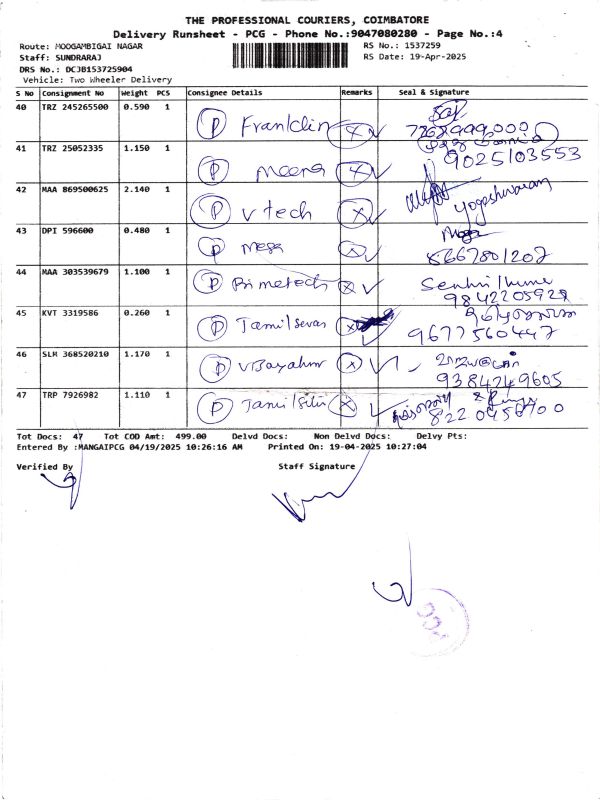 THE PROFESSIONAL COURIERS, COIMBATORE
Delivery Runsheet - PCG - Phone No.:9047080280 - Page No.:4
Route: MOOGAMBIGAI NAGAR RS No.: 1537259
Staff: SUNDRARAJ RS Date: 19-Apr-2025
DRS No.: DCJB153725904
Vehicle: Two Wheeler Delivery
S No Consignment No Weight PCS Consignee Details Remarks Seal & Signature
40 TRZ 245265500 0.590 1 P Franklin X
41 TRZ 25052335 1.150 1 P meena X 9025103553
42 MAA 869500625 2.140 1 P V tech X yogeshwaran
43 DPI 596600 0.480 1 P mega X 8667801207
44 MAA 303539679 1.100 1 P Bimetech X
9842205928
45 KVT 3319586 0.260 1 P X 9677560447
46 SLM 368520210 1.170 1 P X
9384249605
47 TRP 7926982 1.110 1 P X
Tot Docs: 47 Tot COD Amt: 499.00 Delvd Docs: Non Delvd Docs: Delvy Pts:
Entered By :MANGAIPCG 04/19/2025 10:26:16 AM Printed On: 19-04-2025 10:27:04
Verified By Staff Signature